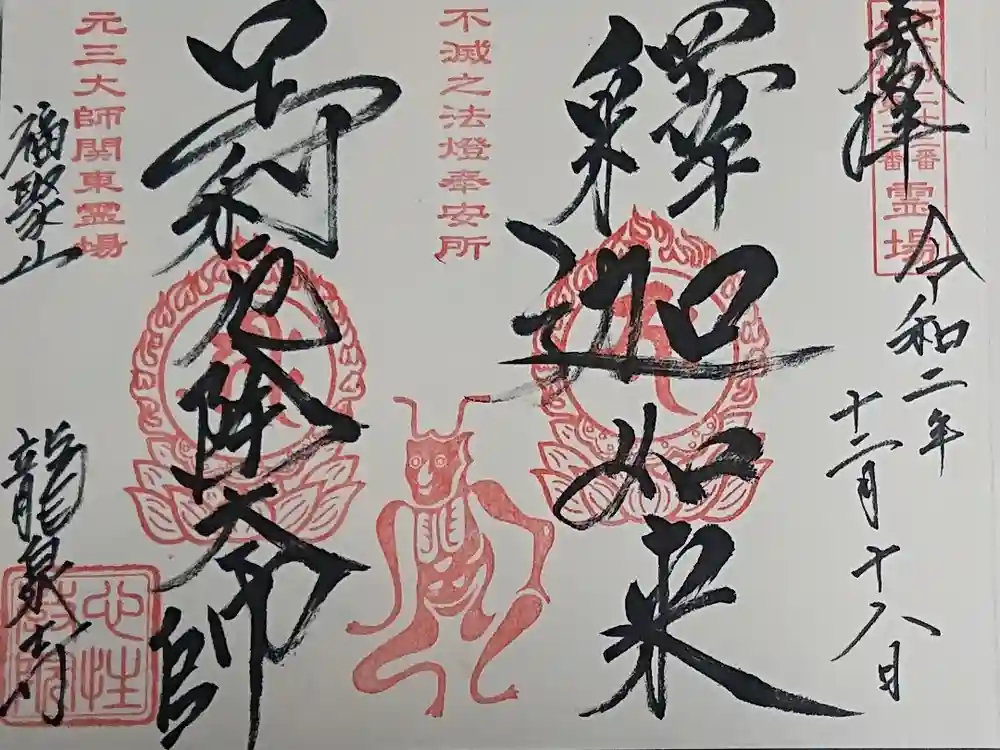 奉拝
霊場
令和二年
十二月十八日
釋迦如来
不滅之法燈奉安所
厄除大師
元三大師関東霊場
福聚山
龍泉寺